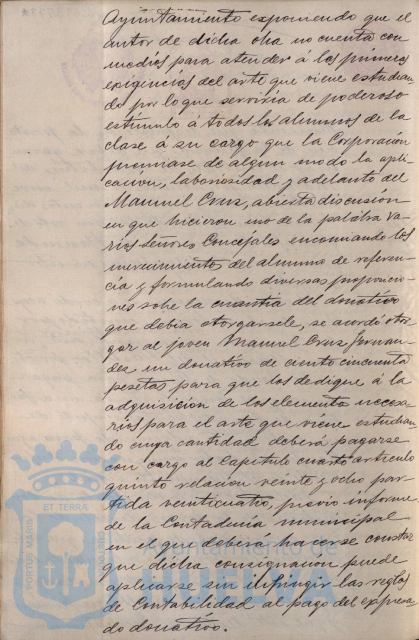 Ayuntamiento exponiendo que el
autor de dicha obra no cuenta con
medios para atender á las primeras
exigencias del arte que viene estudian
do por lo que serviria de poderoso
estimulo á todos los alumnos de la
clase á su cargo que la Corporación
premiase de algun modo la apli
cación, laboriosidad y adelanto del
Manuel Cruz, abierta discusión
en que hicieron uso de la palabra va
rios Señores Concejales encomiando los
merecimientos del alumno de referen
cia y formulando diversas proposicio
nes sobre la cuantia del donativo
que debia otorgarsele, se acordó otor
gar al joven Manuel Cruz Fernan
dez un donativo de ciento cincuenta
pesetas para que los dedique á la
adquisición de los elementos necesa
rios para el arte que viene estudian
do cuya cantidad deberá pagarse
con cargo al Capitulo cuarto articulo
quinto relacion veinte y ocho par
tida veinticuatro, previo informe
de la Contaduria municipal
en el que deberá hacerse constar
que dicha consignacion puede
aplicarse sin infringir las reglas
de Contabilidad al pago del expresa
do donativo.
PORTUS MARIS
ET TERRÆ
Ayuntamiento de
HUELVA